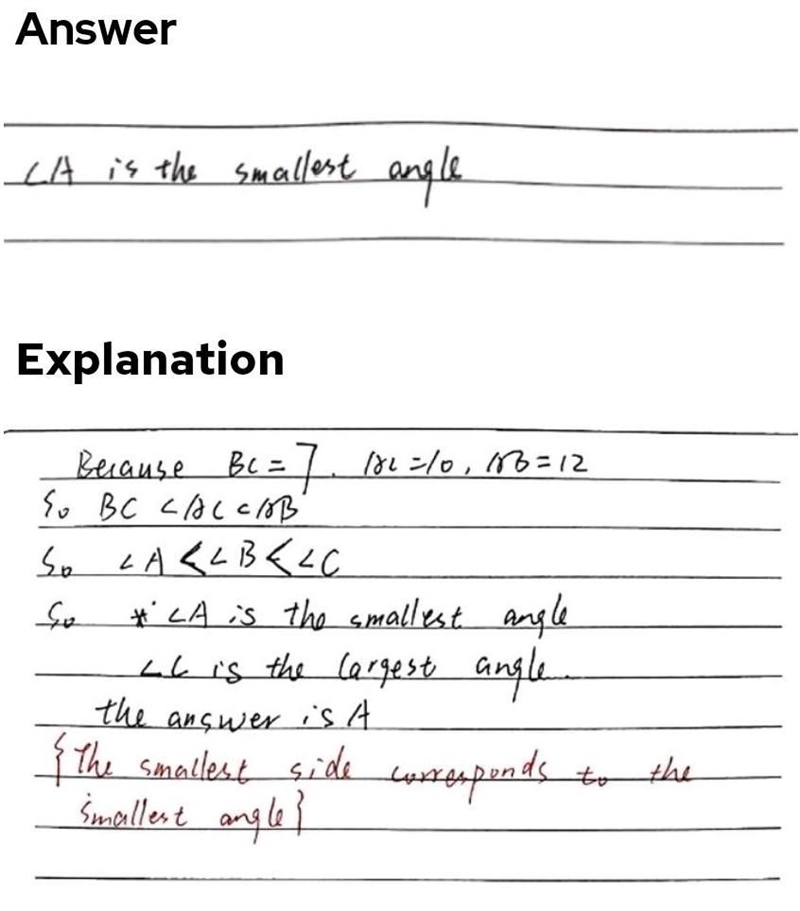 Answer
∠A is the smallest angle
Explanation
Because BC = 7. AC = 10, AB = 12
So BC < AC < AB
So ∠A < ∠B < ∠C
So * ∠A is the smallest angle
∠C is the largest angle.
the answer is A
{The smallest side corresponds to the
smallest angle}